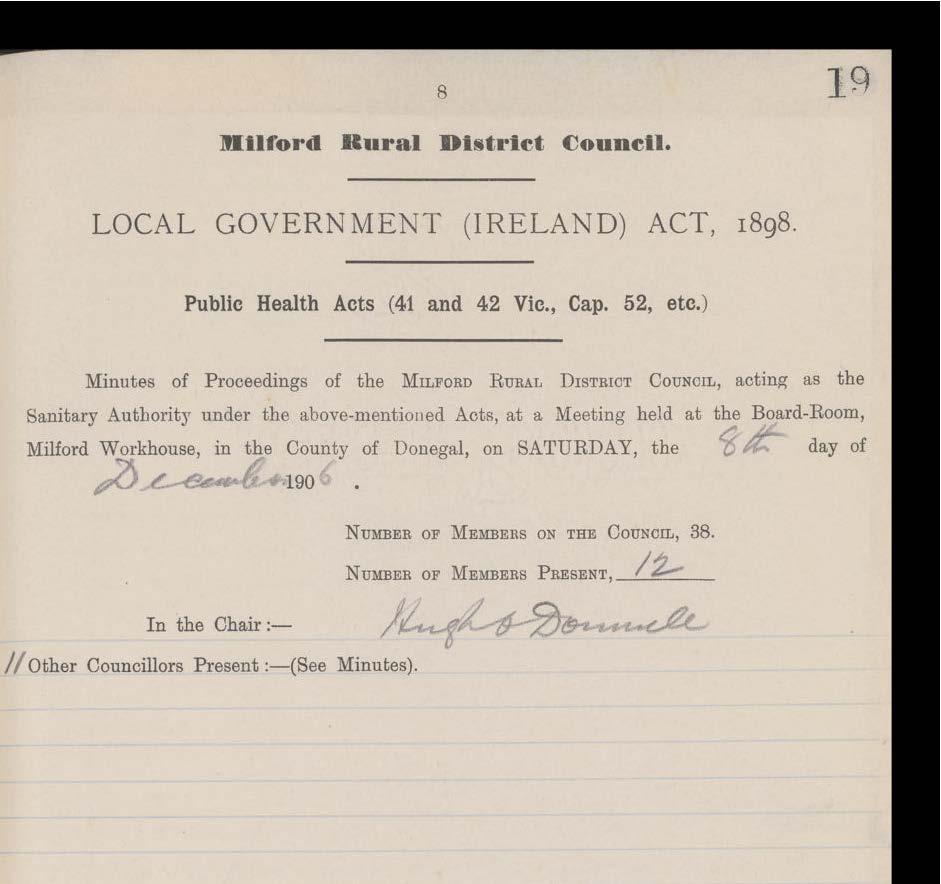 19
8
Milford Rural District Council.
LOCAL GOVERNMENT (IRELAND) ACT, 1898.
Public Health Acts (41 and 42 Vic., Cap. 52, etc.)
Minutes of Proceedings of the MILFORD RURAL DISTRICT COUNCIL, acting as the
Sanitary Authority under the above-mentioned Acts, at a Meeting held at the Board-Room,
Milford Workhouse, in the County of Donegal, on SATURDAY, the 8th day of
December 1906 .
NUMBER OF MEMBERS ON THE COUNCIL, 38.
NUMBER OF MEMBERS PRESENT, 12
In the Chair :— Hugh O Donnell
11 Other Councillors Present :—(See Minutes).